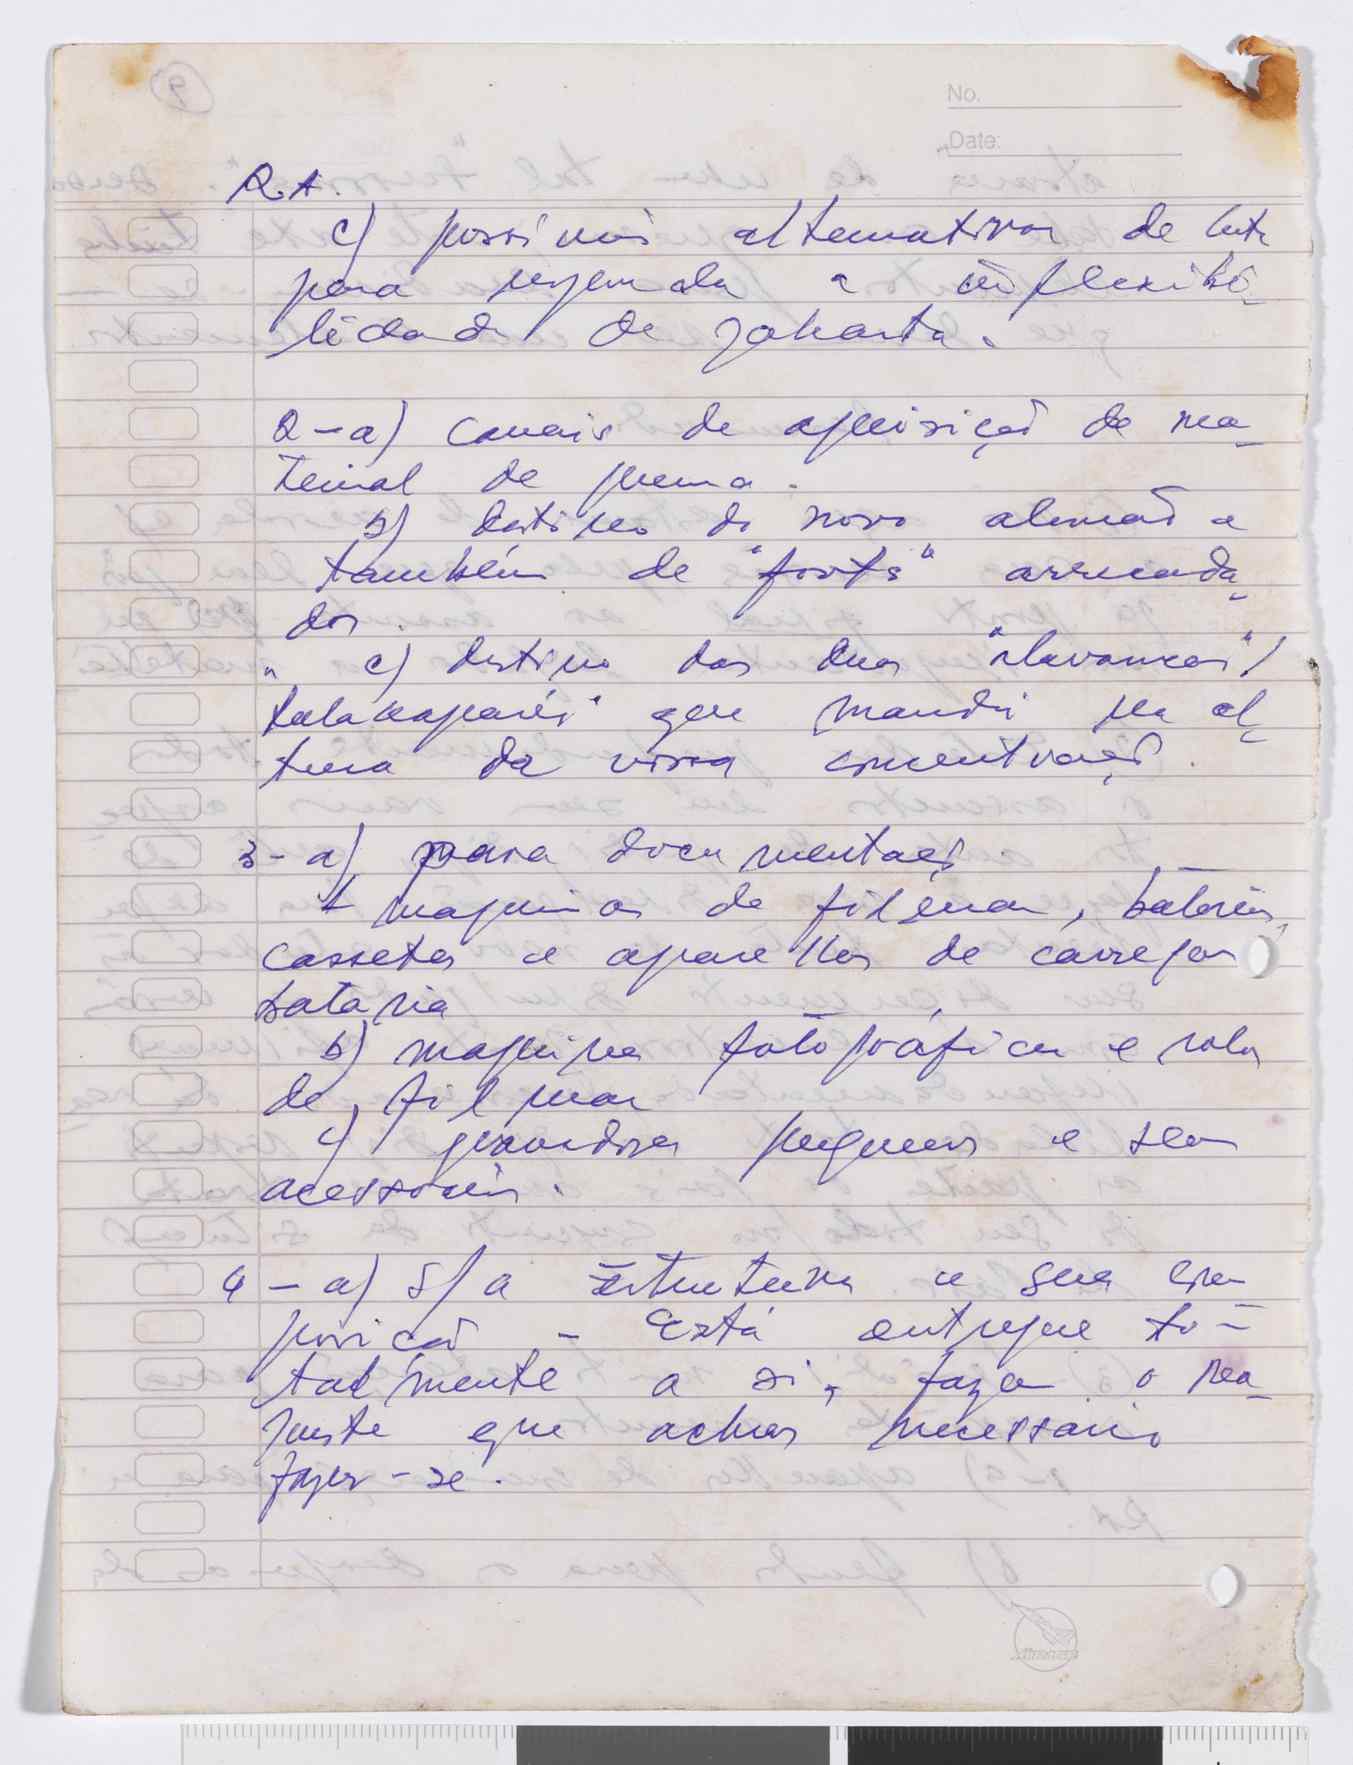 9
No.
Date:
R.A.
c) possíveis alternativas de luta
para responder a inflexibi-
lidade de Jakarta.
2-a) Canais de aquisição de ma-
terial de guerra.
b) destino do novo alemão e
também de "forts" arrecada-
dos.
" c) destino das duas "alavancas"/
que mandei na al-
tura da vossa concentração.
3-a) para documentação.
+ maquinas de filmar, baterias,
cassetes e aparelhos de carregar
bataria
b) maquina fotográfica e rolo
de filmar
c) gravadores pequenos e seus
acessorios.
4-a) S/a Estrutura e sua com-
posição - Está entregue to-
talmente a si, fazer o rea-
juste que achar necessario
fazer-se.